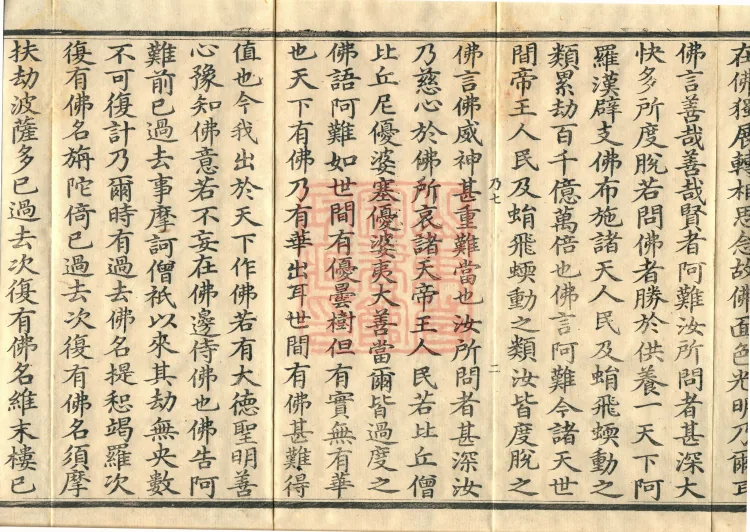 在佛独展轉相思念故佛面色光明乃爾耳
佛言善哉善哉賢者阿難汝所問者甚深大
快多所度脫若問佛者勝於供養一天下阿
羅漢辟支佛布施諸天人民及蜎飛蝡動之
類累劫百千億萬倍也佛言阿難今諸天世
間帝王人民及蜎飛蝡動之類汝皆度脫之
乃七 二
佛言佛威神甚重難當也汝所問者甚深汝
乃慈心於佛所哀諸天帝王人民若比丘僧
比丘尼優婆塞優婆夷大善當爾皆過度之
佛語阿難如世間有優曇樹但有實無有華
也天下有佛乃有華出耳世間有佛甚難得
值也今我出於天下作佛若有大德聖明善
心豫知佛意若不妄在佛邊侍佛也佛告阿
難前已過去事摩訶僧祇以來其劫無央數
不可復計乃爾時有過去佛名提惒竭羅次
復有佛名旃陀倚已過去次復有佛名須摩
扶劫波薩多已過去次復有佛名維末樓已